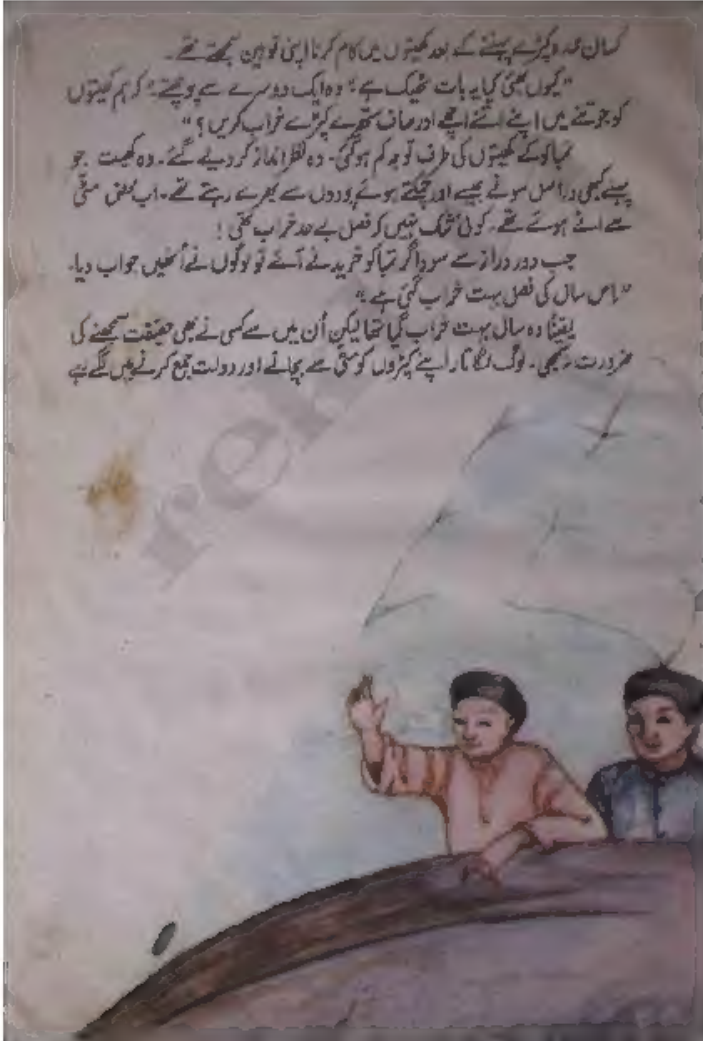 کسان عمدہ کپڑے پہننے کے بعد کھیتوں میں کام کرنا اپنی توہین سمجھتے تھے۔
"کیوں بھئی کیا یہ بات ٹھیک ہے" وہ ایک دوسرے سے پوچھتے" کہ ہم کھیتوں
کو جوتنے میں اپنے اتنے اچھے اور صاف ستھرے کپڑے خراب کریں؟"
تمباکو کے کھیتوں کی طرف توجہ کم ہوگئی۔ وہ نظر انداز کر دیے گئے۔ وہ کھیت جو
پہلے کبھی دراصل سونے جیسے اور چمکتے ہوئے پودوں سے بھرے رہتے تھے۔ اب محض مٹی
سے اٹے ہوئے تھے۔ کوئی شک نہیں کہ فصل بے حد خراب تھی!
جب دور دراز سے سوداگر تمباکو خریدنے آئے تو لوگوں نے اُنھیں جواب دیا۔
"اس سال کی فصل بہت خراب گئی ہے"
یقیناً وہ سال بہت خراب گیا تھا لیکن اُن میں سے کسی نے بھی حقیقت سمجھنے کی
ضرورت نہ سمجھی۔ لوگ لگاتار اپنے کپڑوں کو مٹی سے بچانے اور دولت جمع کرنے میں لگے رہے
rek